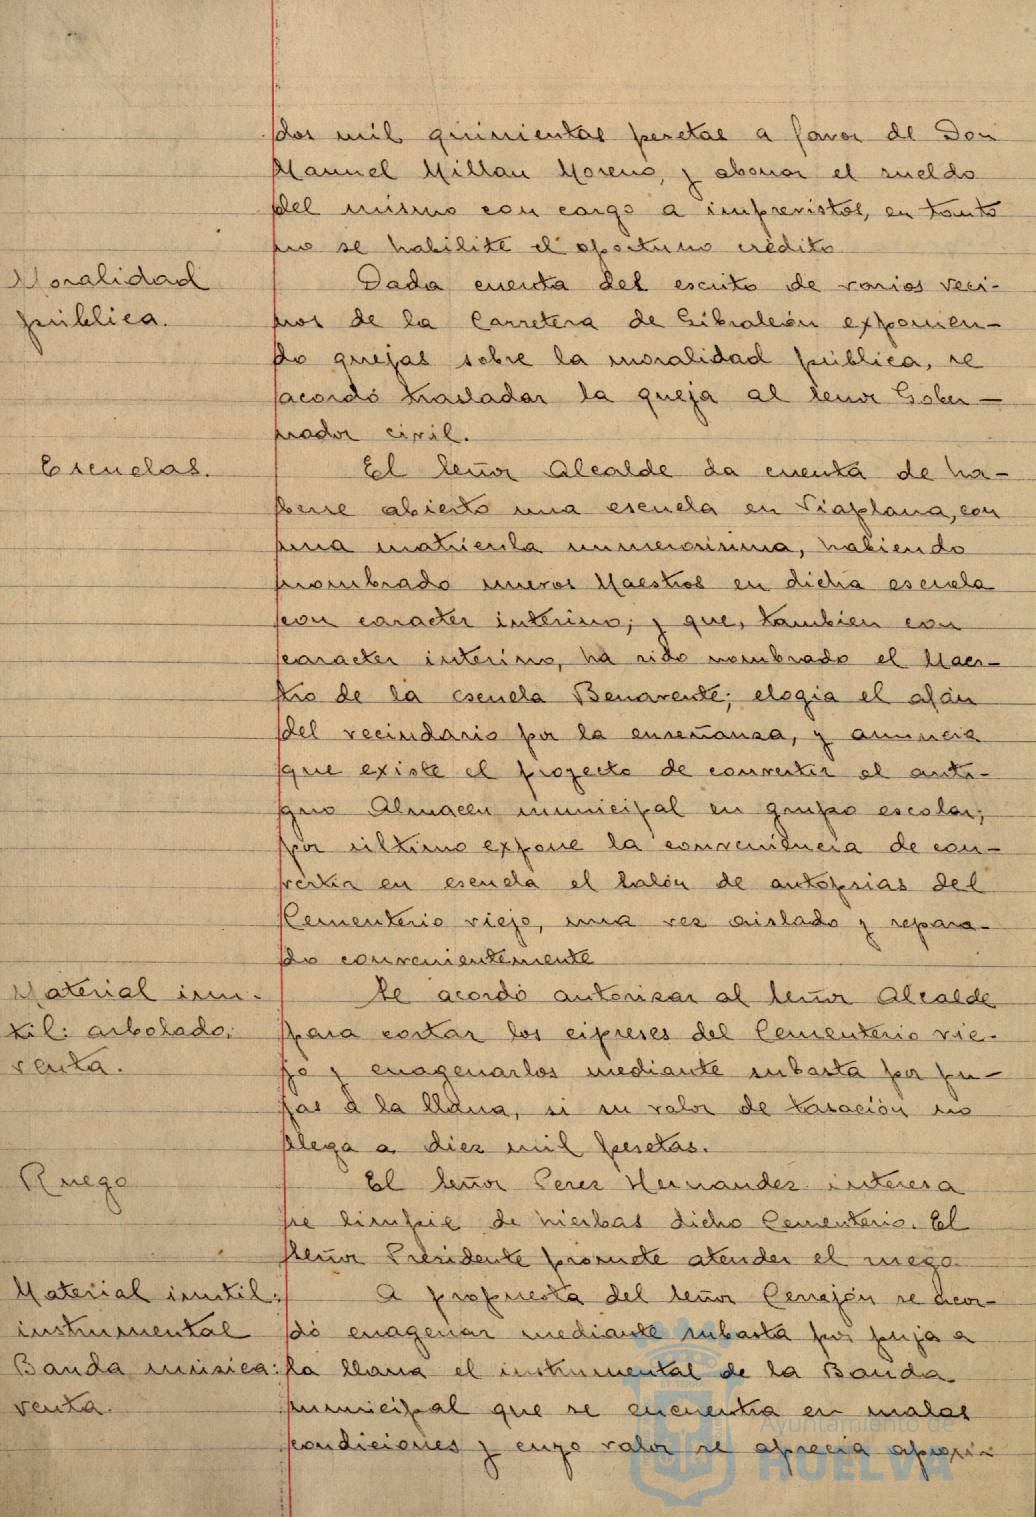 dos mil quinientas pesetas a favor de Don
Manuel Millan Moreno, y abonar el sueldo
del mismo con cargo a imprevistos, en tanto
no se habilite el oportuno crédito
Moralidad
pública.
Dada cuenta del escrito de varios veci-
nos de la Carretera de Gibraleón exponien-
do quejas sobre la moralidad pública, se
acordó trasladar la queja al Señor Gober-
nador civil.
Escuelas.
El Señor Alcalde da cuenta de ha-
berse abierto una escuela en Viaplana, con
una matricula numerosisima, habiendo
nombrado nuevos Maestros en dicha escuela
con caracter interino; y que, tambien con
caracter interino, ha sido nombrado el Maes-
tro de la escuela Benavente; elogia el afán
del vecindario por la enseñanza, y anuncia
que existe el proyecto de convertir el anti-
guo Almacen municipal en grupo escolar;
por último expone la conveniencia de con-
vertir en escuela el Salón de autopsias del
Cementerio viejo, una vez aislado y repara-
do convenientemente
Material inu-
til: arbolado:
venta.
Se acordó autorizar al Señor Alcalde
para cortar los cipreses del Cementerio vie-
jo y enagenarlos mediante subasta por pu-
jas a la llana, si su valor de tasación no
llega a diez mil pesetas.
Ruego
El Señor Perez Hernandez interesa
se limpie de hierbas dicho Cementerio. El
Señor Presidente promete atender el ruego.
Material inutil:
instrumental
Banda música:
venta.
A propuesta del Señor Cerrejón se acor-
dó enagenar mediante subasta por puja a
la llana el instrumental de la Banda
municipal que se encuentra en malas
condiciones y cuyo valor se aprecia aproxi
Ayuntamiento de
HUELVA